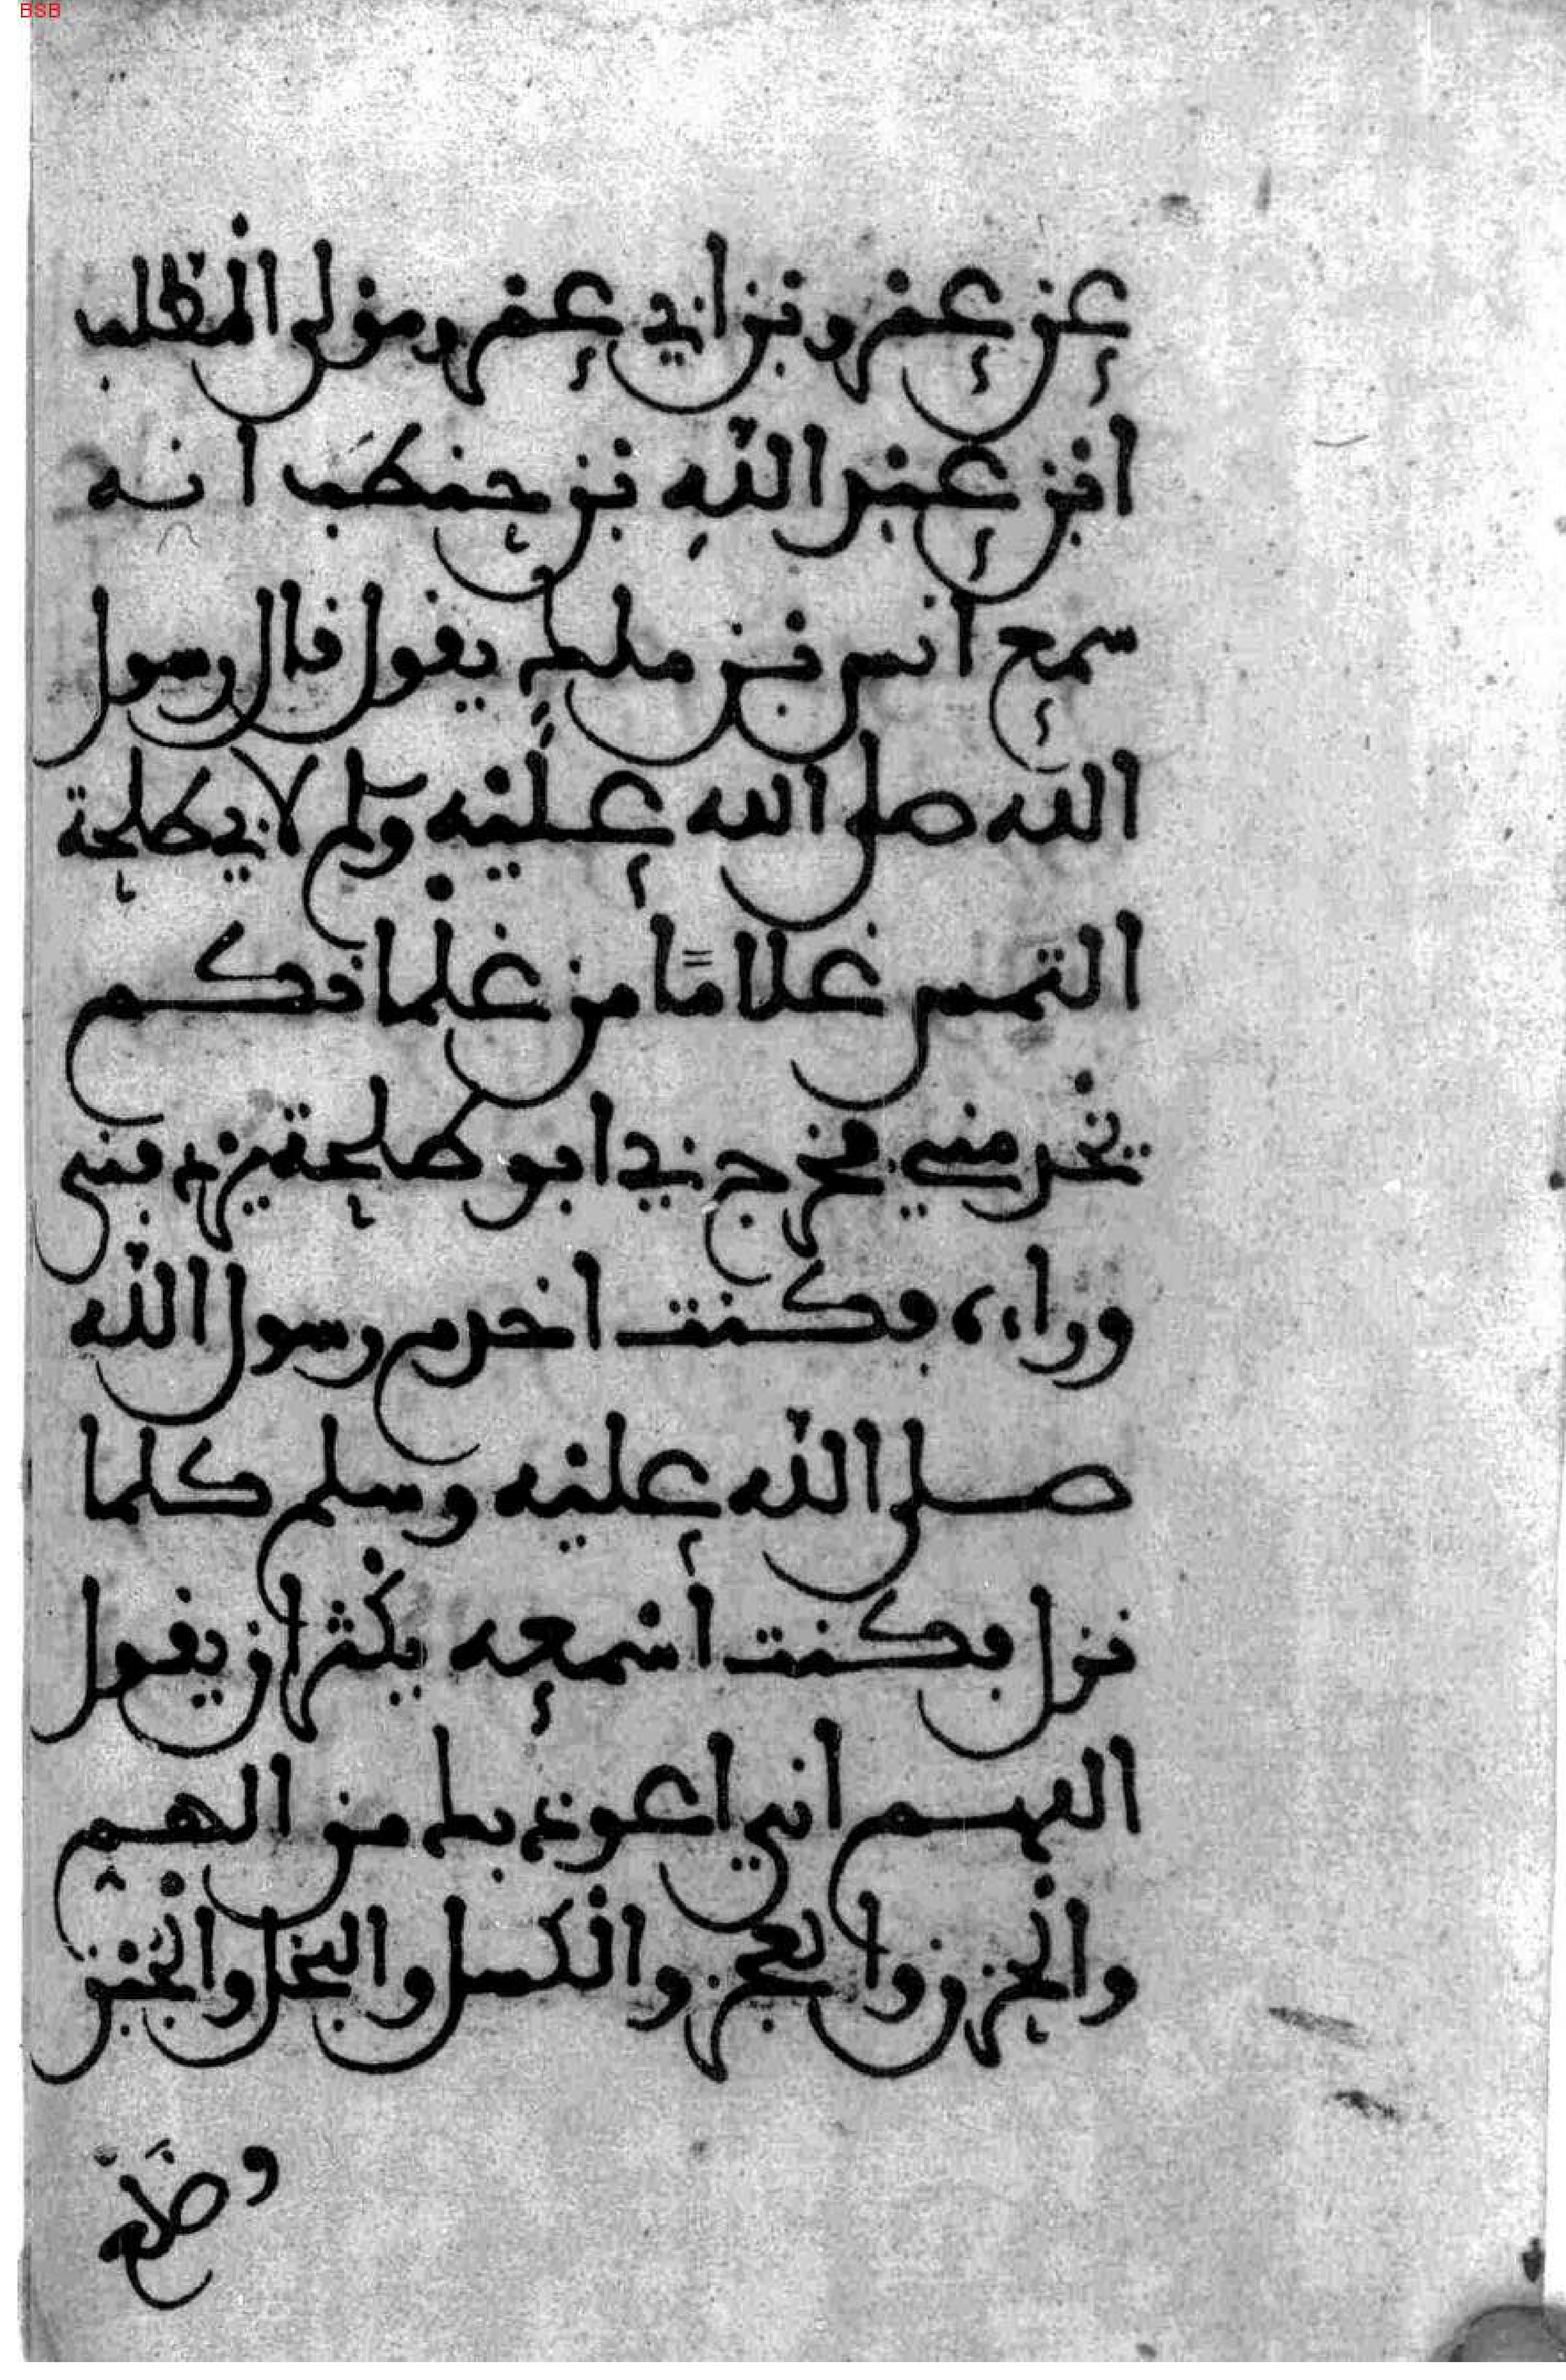 BSB
عن عمرو بن ابي عمرو مولى المطلب
ابن عبد الله بن حنطب انه
سمع انس بن ملك يقول قال رسول
الله صلى الله عليه وسلم لابي طلحة
التمس غلامًا من غلمانكم
يخدمني فخرج بي ابو طلحة يردفني
وراءه فكنت اخدم رسول الله
صلى الله عليه وسلم كلما
نزل فكنت أسمعه يكثر ان يقول
اللهم اني اعوذ بك من الهم
والحزن والعجز والكسل والبخل والجبن
وضلع